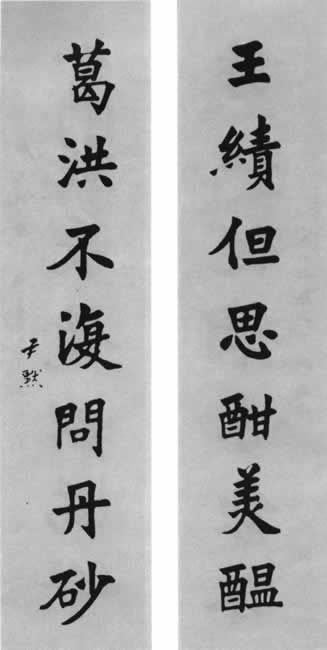 王績但思酣美醞
葛洪不海問丹砂
尹默